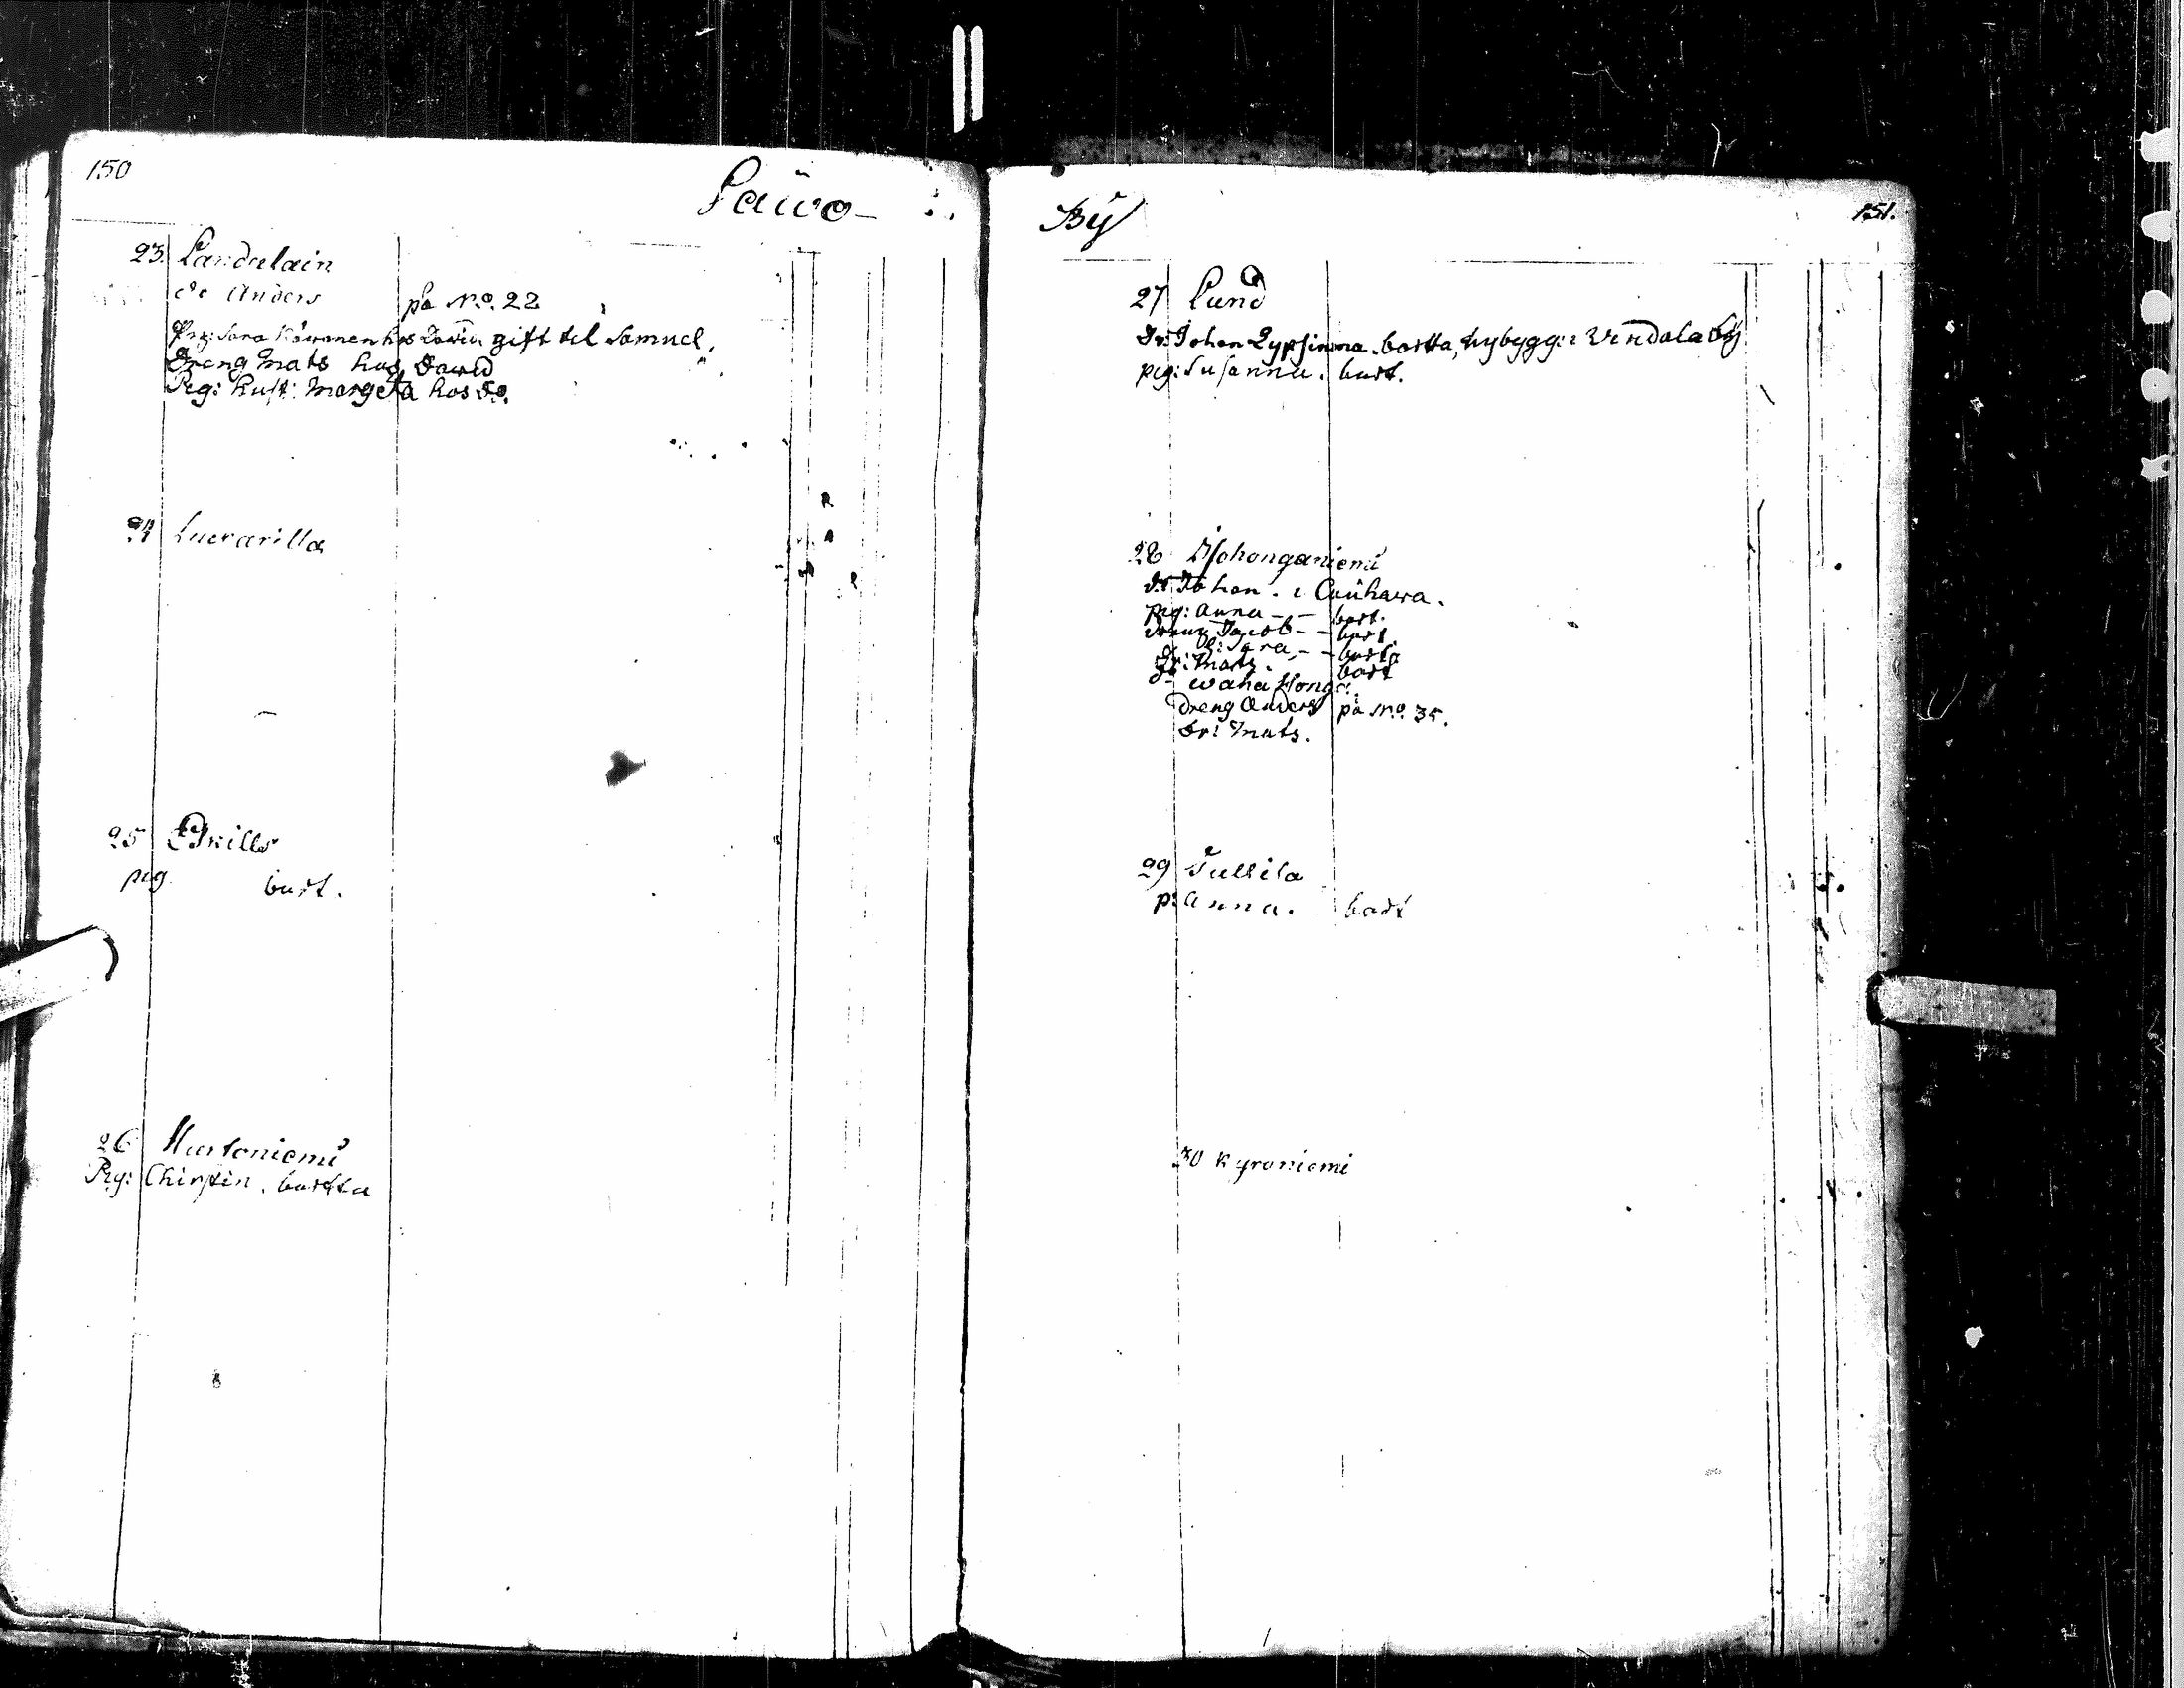 150
Lauwo-
23. Landulain
do Anders på No. 22
Pig: Sara hos David gift til Samuel.
Dreng Mats hos David
Pig: Hust: Margeta hos do.
24 Luerarilla
25 Grills
pig bort.
26 Hurtoniemi
Pig: Chirstin. bortta
By
151.
27 Lund
Dr: Johan Lypsinma. bortta, nybygg: i Vindala by
pig: Susanna. bort.
28 Isohonganiemi
Dr: Johan. i Cauhawa.
Pig: Anna - - bort.
Dreng Jacob - - bort.
Sara, - - bortta
Dr: Mats. bort
waha Honga.
Dreng Anders på No. 35.
Dr: Mats.
29 Tullila
p: Anna. bort
30 Kyroniemi